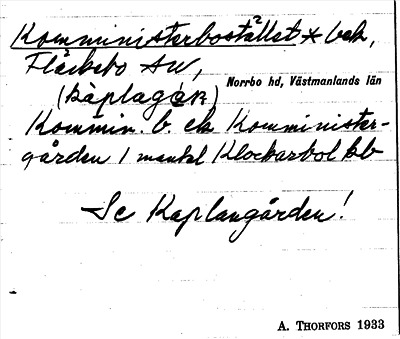 Komministerbostället * bek,
Fläckebo AV,
Norrbo hd, Västmanlands län
(
Kommin. b. ek Komminister-
gården 1 mantal Klockarbol bb
Se Kaplansgården!
A. THORFORS 1933